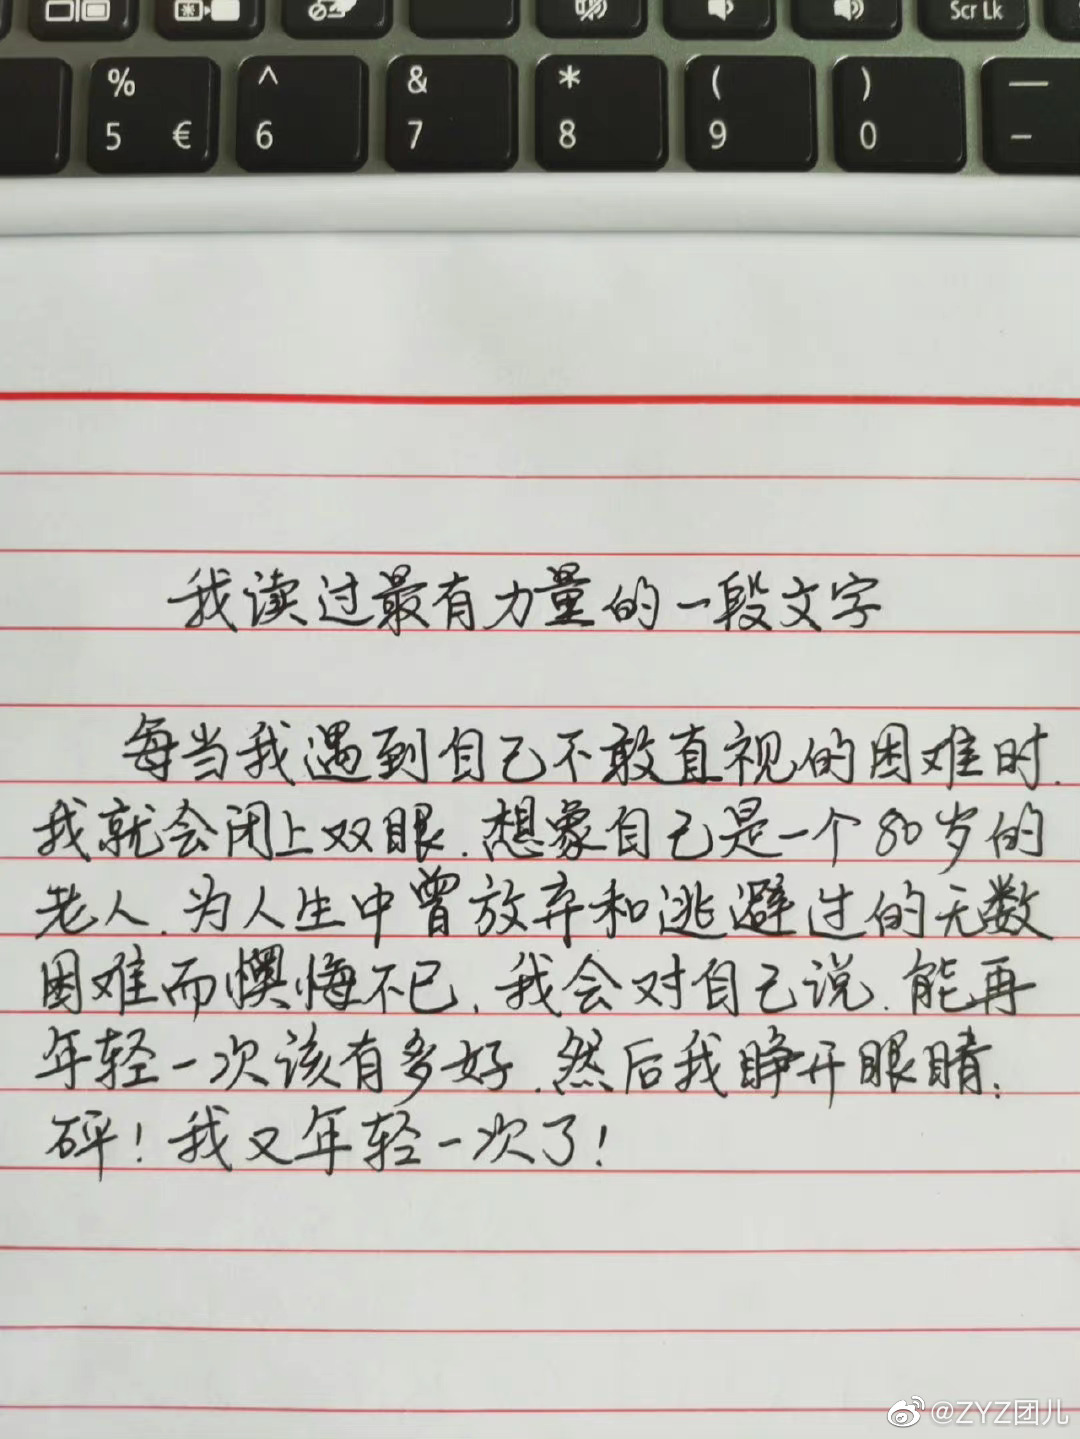 % & * ( ) —
5 € 6 7 8 9 0 -
Scr Lk
我读过最有力量的一段文字
每当我遇到自己不敢直视的困难时.
我就会闭上双眼.想象自己是一个80岁的
老人.为人生中曾放弃和逃避过的无数
困难而懊悔不已,我会对自己说.能再
年轻一次该有多好.然后我睁开眼睛.
砰!我又年轻一次了!
@ZYZ团儿